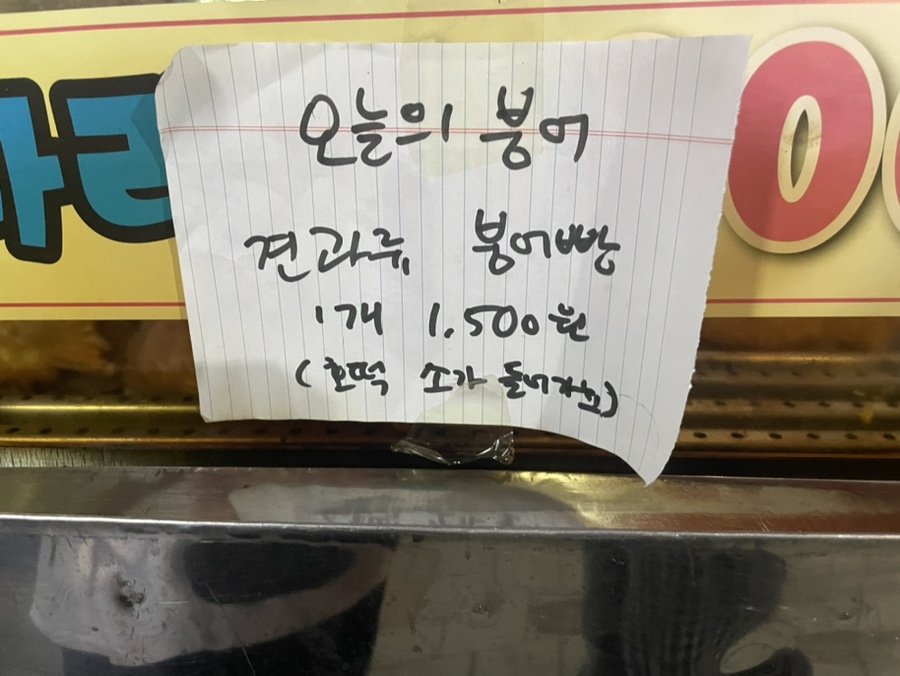 오늘의 붕어
견과류 붕어빵
1개 1,500원
(호떡 소가 들어가요)